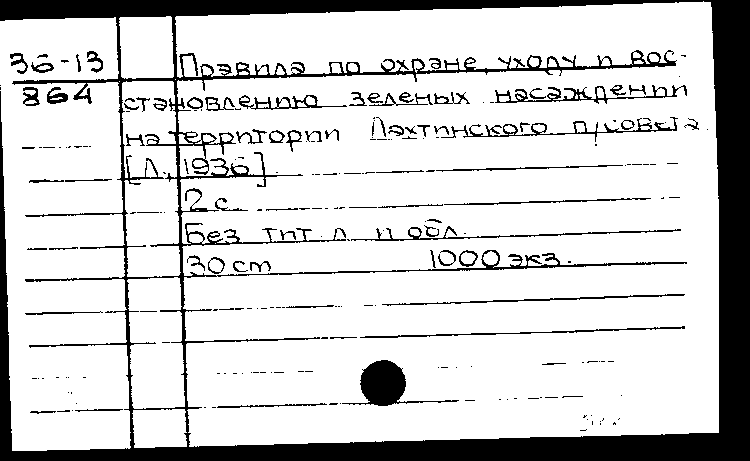 36-13
864
Правила по охране, уходу и вос-
становлению зеленых насаждений
на территории Лахтинского п/совета
[Л., 1936]
2 с.
Без тит. л. и обл.
30 cm 1000 экз.